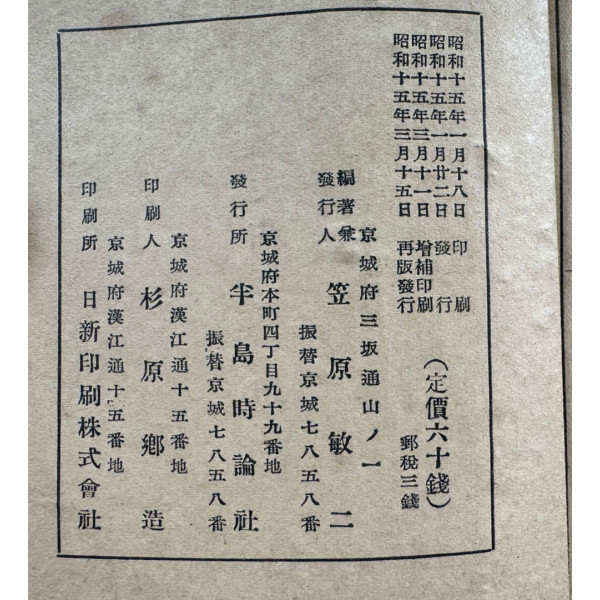 昭和十五年一月十八日 印刷
昭和十五年一月廿二日 發行
昭和十五年三月十一日 增補印刷
昭和十五年三月十五日 再版發行
(定價六十錢)
郵稅三錢
京城府三坂通山ノ一
編著兼發行人 笠原敏二
振替京城七八五八番
京城府本町四丁目九十九番地
發行所 半島時論社
振替京城七八五八番
京城府漢江通十五番地
印刷人 杉原鄕造
京城府漢江通十五番地
印刷所 日新印刷株式會社